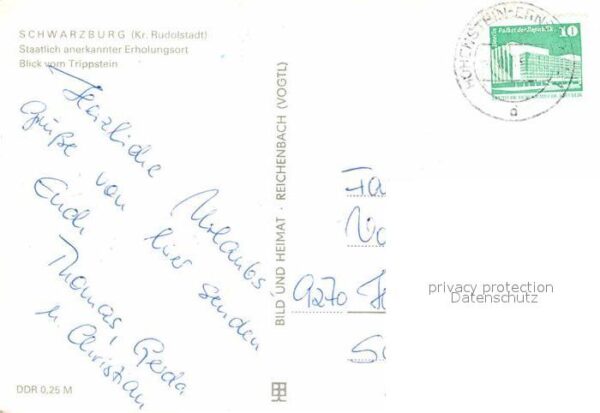 SCHWARZBURG (Kr. Rudolstadt)
Staatlich anerkannter Erholungsort
Blick vom Trippstein
Herzliche Urlaubs
grüße von hier senden
Euch
Thomas, Gerda
u. Christian
DDR 0,25 M
BILD UND HEIMAT · REICHENBACH (VOGTL)
HOHENSTEIN-ERN
a
Palast der Republik
10
Fa
9270 H
privacy protection
Datenschutz